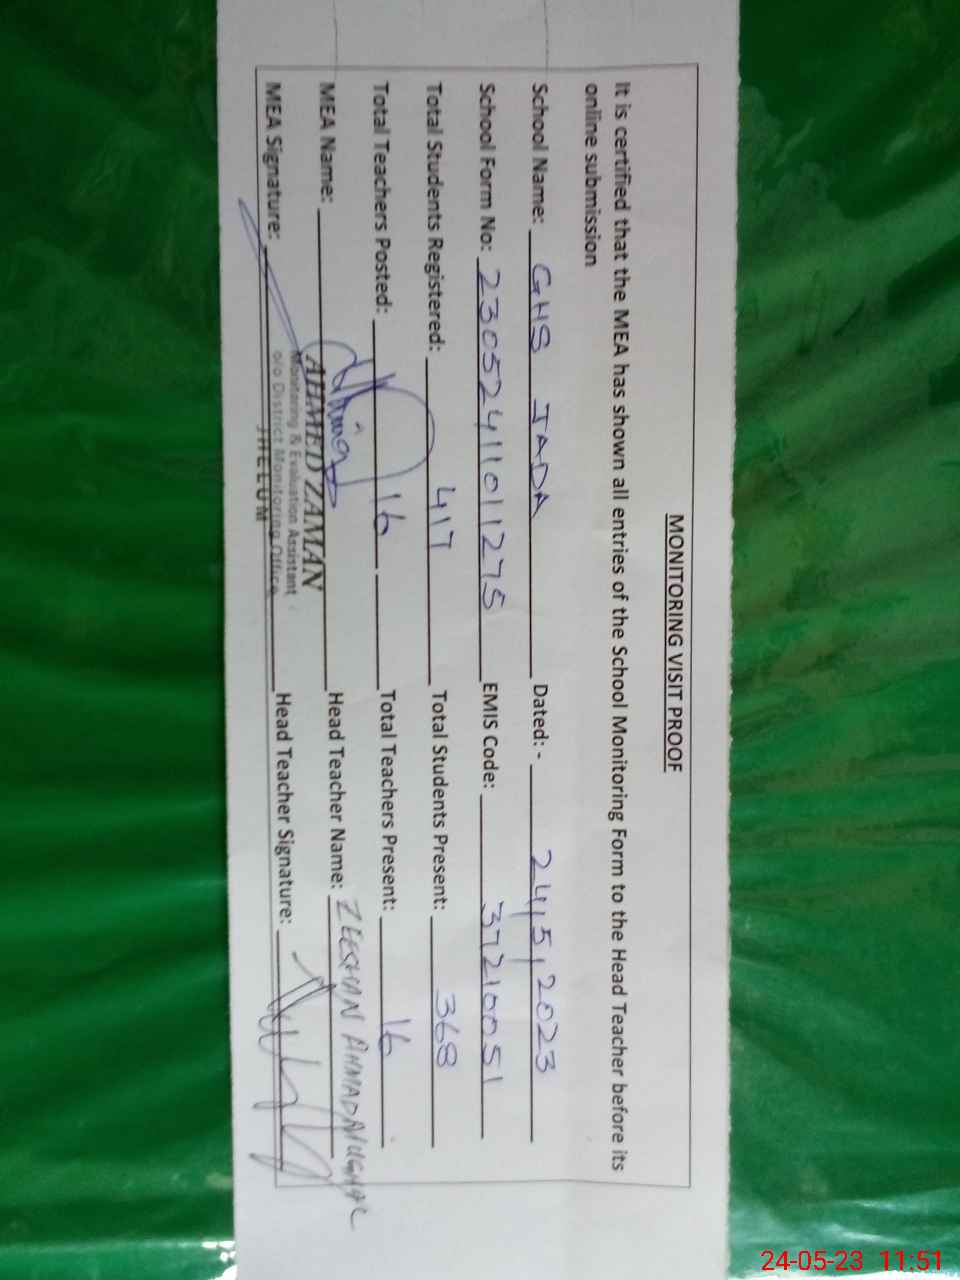 MONITORING VISIT PROOF
It is certified that the MEA has shown all entries of the School Monitoring Form to the Head Teacher before its
online submission
School Name: GHS JADA Dated:- 24,5,2023
School Form No: 23052411011275 EMIS Code: 37210051
Total Students Registered: 417 Total Students Present: 368
Total Teachers Posted: 16 Total Teachers Present: 16
MEA Name: AHMED ZAMAN Head Teacher Name: ZEESHAN AHMAD MUGHAL
Monitoring & Evaluation Assistant
MEA Signature: o/o District Monitoring Office Head Teacher Signature:
JHELUM
24-05-23 11:51